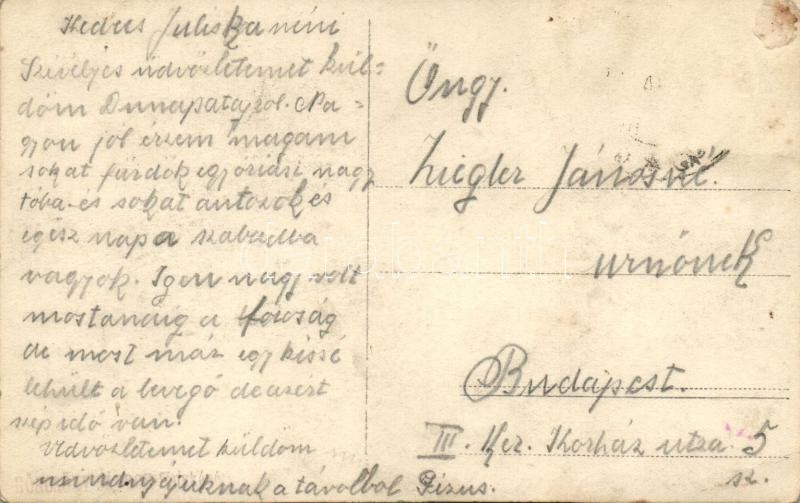 Kedves Juliska néni
Szivélyes üdvözletemet kül-
döm Dunapatajrol. Na-
gyon jól érzem magam
sokat fürdök egy óriási nagy
tóba és sokat autozok és
egész nap a szabadba
vagyok. Igen nagy volt
mostanáig a foróság
de most már egy kissé
lehült a levegő de azért
szép idő van.
Üdvözletemet küldöm
mindnyájuknak a távolbol
Öngy.
Ziegler Jánosné.
urnőnek
Budapest.
III. Ker. Korház utza 5
sz.
darabanth